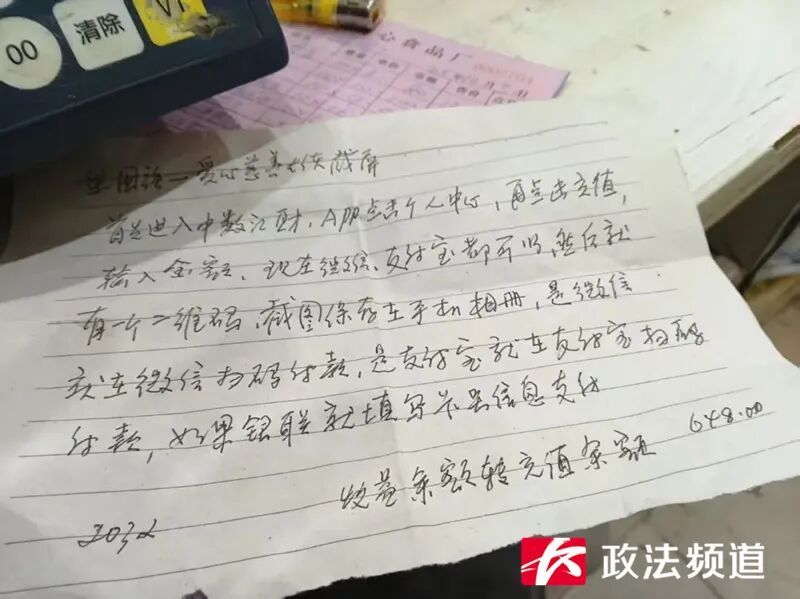 00
清除
心食品厂
爱心慈善大使截屏
首先进入中数汇财，APP点击个人中心，再点击充值，
输入金额、现在微信、支付宝都可以，然后就
有一个二维码，截图保存在手机相册，是微信
就在微信扫码付款，是支付宝就在支付宝扫码
付款，如果银联就填写卡号信息支付
收益余额转充值余额 648.00
2032
政法频道